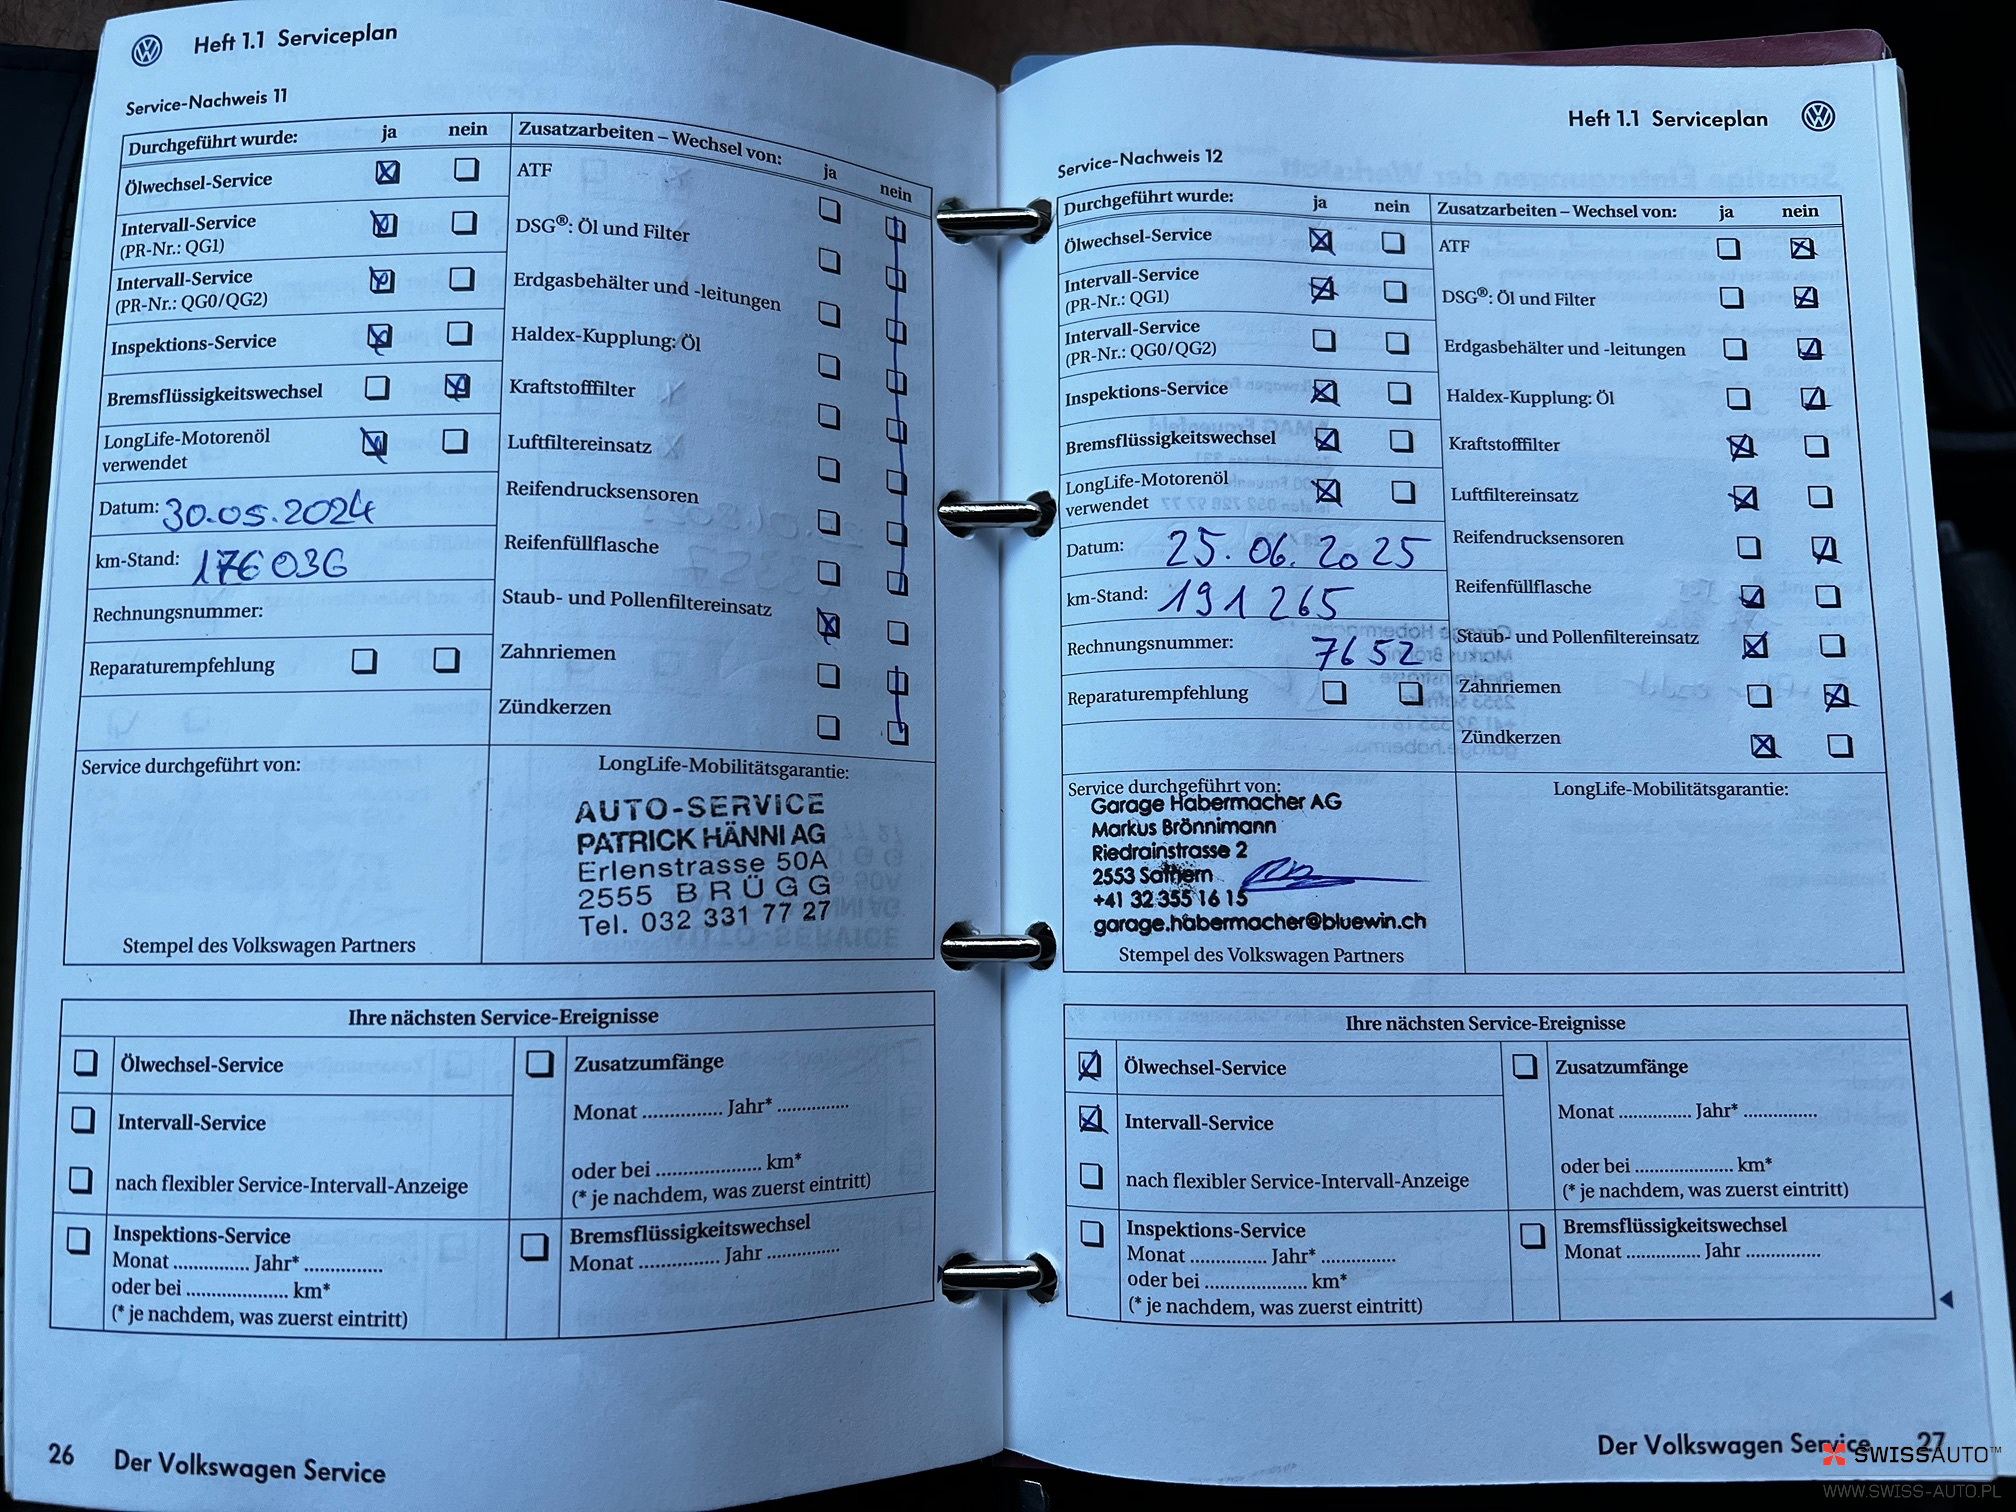 Heft 1.1 Serviceplan
Service-Nachweis 11
Durchgeführt wurde: ja nein
Ölwechsel-Service
Intervall-Service
(PR-Nr.: QG1)
Intervall-Service
(PR-Nr.: QG0/QG2)
Inspektions-Service
Bremsflüssigkeitswechsel
LongLife-Motorenöl
verwendet
Datum: 30.05.2024
km-Stand: 176036
Rechnungsnummer:
Reparaturempfehlung
Zusatzarbeiten – Wechsel von: ja nein
ATF
DSG®: Öl und Filter
Erdgasbehälter und -leitungen
Haldex-Kupplung: Öl
Kraftstofffilter
Luftfiltereinsatz
Reifendrucksensoren
Reifenfüllflasche
Staub- und Pollenfiltereinsatz
Zahnriemen
Zündkerzen
Service durchgeführt von:
Stempel des Volkswagen Partners
LongLife-Mobilitätsgarantie:
AUTO-SERVICE
PATRICK HÄNNI AG
Erlenstrasse 50A
2555 BRÜGG
Tel. 032 331 77 27
Ihre nächsten Service-Ereignisse
Ölwechsel-Service
Intervall-Service
nach flexibler Service-Intervall-Anzeige
Inspektions-Service
Monat .............. Jahr* ..............
oder bei .................... km*
(* je nachdem, was zuerst eintritt)
Zusatzumfänge
Monat .............. Jahr* ..............
oder bei .................... km*
(* je nachdem, was zuerst eintritt)
Bremsflüssigkeitswechsel
Monat .............. Jahr ..............
26 Der Volkswagen Service
Heft 1.1 Serviceplan
Service-Nachweis 12
Durchgeführt wurde: ja nein
Ölwechsel-Service
Intervall-Service
(PR-Nr.: QG1)
Intervall-Service
(PR-Nr.: QG0/QG2)
Inspektions-Service
Bremsflüssigkeitswechsel
LongLife-Motorenöl
verwendet
Datum: 25.06.2025
km-Stand: 191265
Rechnungsnummer: 7652
Reparaturempfehlung
Zusatzarbeiten – Wechsel von: ja nein
ATF
DSG®: Öl und Filter
Erdgasbehälter und -leitungen
Haldex-Kupplung: Öl
Kraftstofffilter
Luftfiltereinsatz
Reifendrucksensoren
Reifenfüllflasche
Staub- und Pollenfiltereinsatz
Zahnriemen
Zündkerzen
Service durchgeführt von:
Garage Habermacher AG
Markus Brönnimann
Riedrainstrasse 2
2553 Safnern
+41 32 355 16 15
garage.habermacher@bluewin.ch
Stempel des Volkswagen Partners
LongLife-Mobilitätsgarantie:
Ihre nächsten Service-Ereignisse
Ölwechsel-Service
Intervall-Service
nach flexibler Service-Intervall-Anzeige
Inspektions-Service
Monat .............. Jahr* ..............
oder bei .................... km*
(* je nachdem, was zuerst eintritt)
Zusatzumfänge
Monat .............. Jahr* ..............
oder bei .................... km*
(* je nachdem, was zuerst eintritt)
Bremsflüssigkeitswechsel
Monat .............. Jahr ..............
Der Volkswagen Service 27
SWISSAUTO™
WWW.SWISS-AUTO.PL